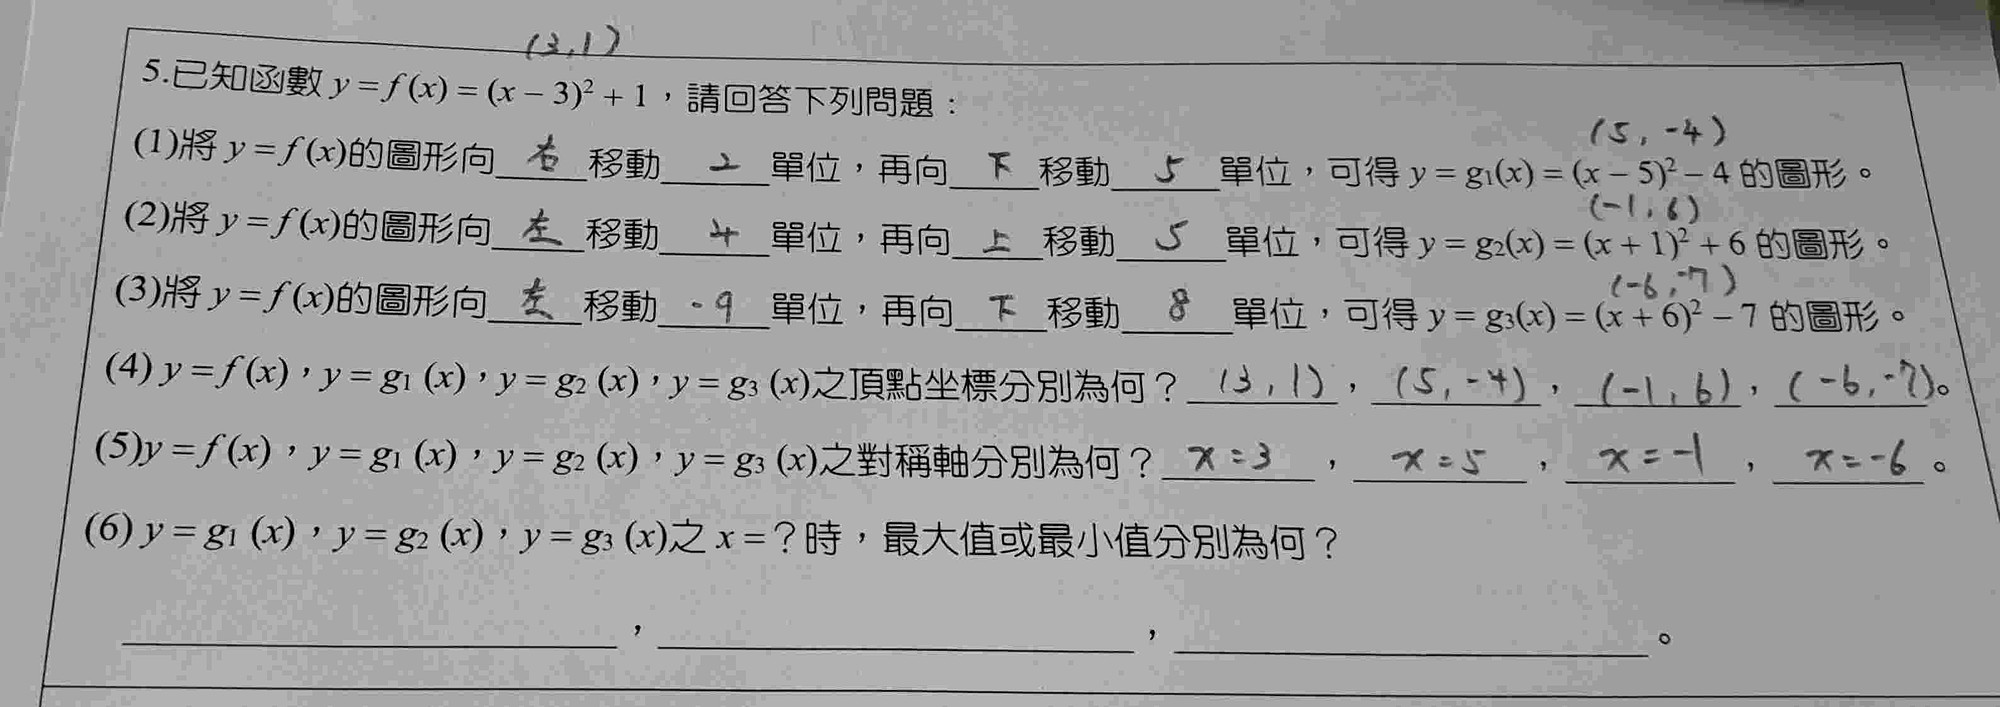 (3,1)
5.已知函數 y = f (x) = (x − 3)² + 1，請回答下列問題：
(5, -4)
(1)將 y = f (x)的圖形向 右 移動 2 單位，再向 下 移動 5 單位，可得 y = g₁(x) = (x − 5)² − 4 的圖形。
(-1, 6)
(2)將 y = f (x)的圖形向 左 移動 4 單位，再向 上 移動 5 單位，可得 y = g₂(x) = (x + 1)² + 6 的圖形。
(-6, -7)
(3)將 y = f (x)的圖形向 左 移動 -9 單位，再向 下 移動 8 單位，可得 y = g₃(x) = (x + 6)² − 7 的圖形。
(4) y = f (x)，y = g₁ (x)，y = g₂ (x)，y = g₃ (x)之頂點坐標分別為何？ (3, 1)，(5, -4)，(-1, 6)，(-6, -7)。
(5)y = f (x)，y = g₁ (x)，y = g₂ (x)，y = g₃ (x)之對稱軸分別為何？ x=3，x=5，x=-1，x=-6。
(6) y = g₁ (x)，y = g₂ (x)，y = g₃ (x)之 x =？時，最大值或最小值分別為何？
，，。